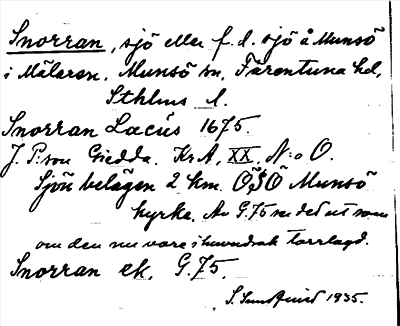 Snorran, sjö eller f.d. sjö å Munsö
i Mälaren. Munsö sn, Färentuna hd,
Sthlms l.
Snorran Lacus 1675.
J. P:son Giedda. KrA, XX, N:o O.
Sjön belägen 2 km. ÖSÖ Munsö
kyrka. Av G.75 ne ded ut som
om den nu vore i huvudsak torrlagd.
Snorran ek. G.75.
1935.